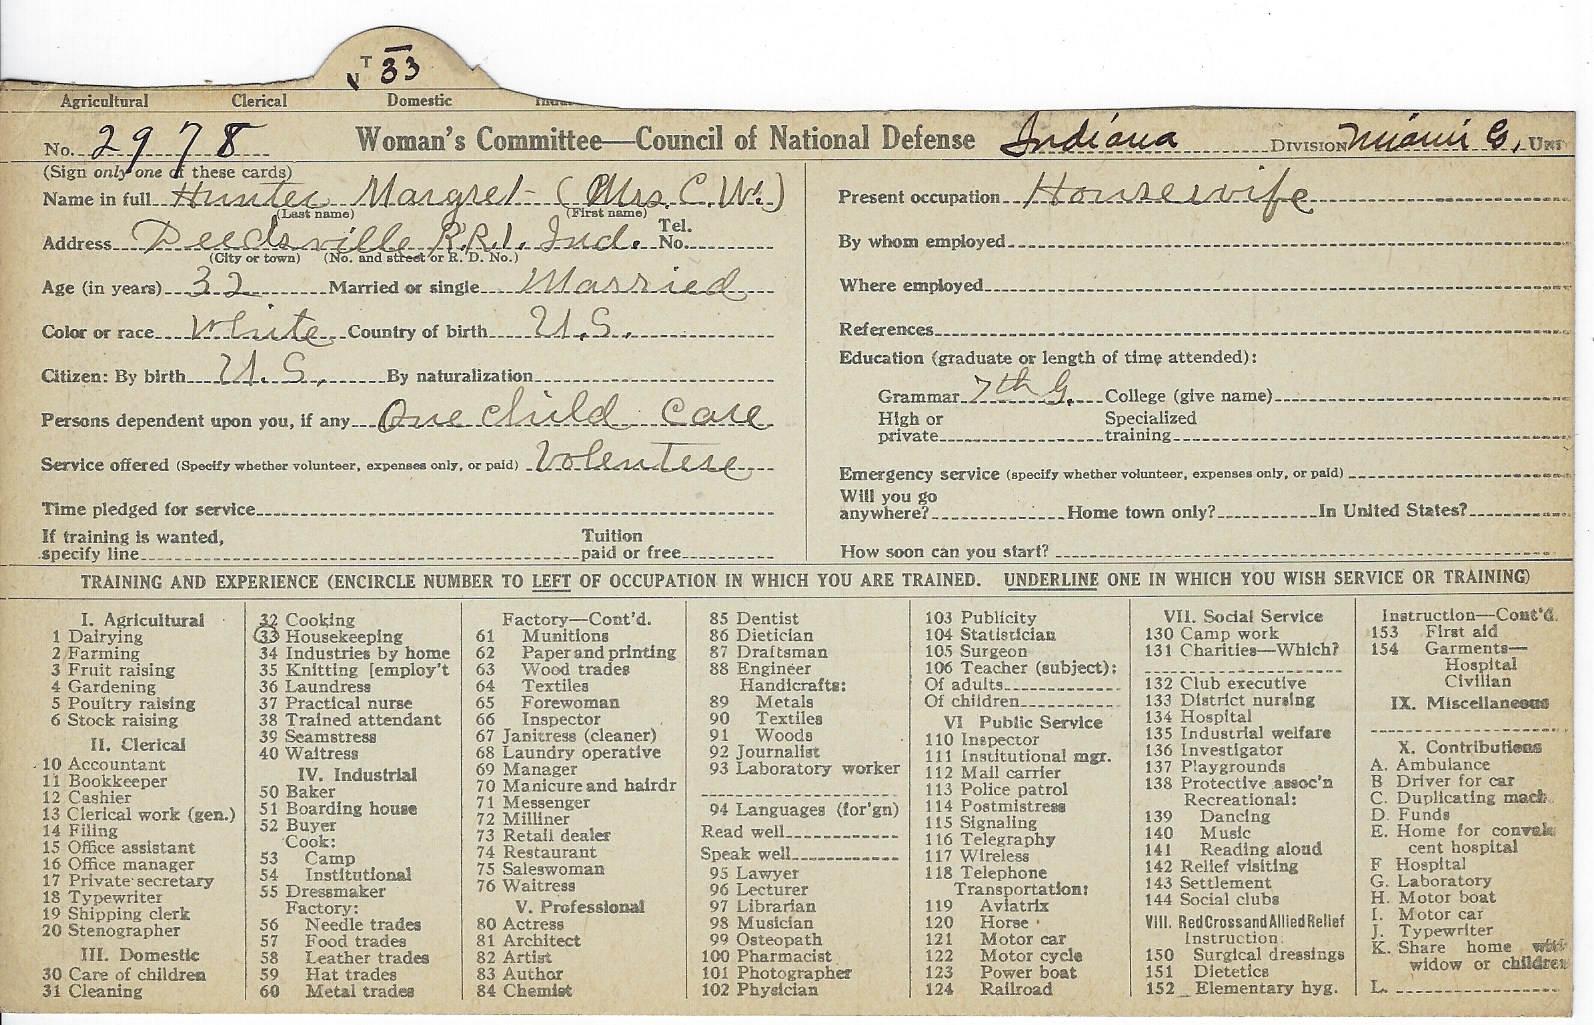 T
33
Agricultural Clerical Domestic
No. 2978 Woman's Committee—Council of National Defense Indiana DIVISION Miami Co. UNIT
(Sign only one of these cards)
Name in full Hunter Margret (Mrs. C. W.)
(Last name) (First name)
Address Deedsville R.R.1. Ind. Tel. No.
(City or town) (No. and street or R. D. No.)
Age (in years) 32 Married or single Married
Color or race White Country of birth U.S.
Citizen: By birth U.S. By naturalization
Persons dependent upon you, if any One child care
Service offered (Specify whether volunteer, expenses only, or paid) Volentere
Time pledged for service
If training is wanted, specify line Tuition paid or free
Present occupation Housewife
By whom employed
Where employed
References
Education (graduate or length of time attended):
Grammar 7th G. College (give name)
High or private Specialized training
Emergency service (specify whether volunteer, expenses only, or paid)
Will you go anywhere? Home town only? In United States?
How soon can you start?
TRAINING AND EXPERIENCE (ENCIRCLE NUMBER TO LEFT OF OCCUPATION IN WHICH YOU ARE TRAINED. UNDERLINE ONE IN WHICH YOU WISH SERVICE OR TRAINING)
I. Agricultural
1 Dairying
2 Farming
3 Fruit raising
4 Gardening
5 Poultry raising
6 Stock raising
II. Clerical
10 Accountant
11 Bookkeeper
12 Cashier
13 Clerical work (gen.)
14 Filing
15 Office assistant
16 Office manager
17 Private secretary
18 Typewriter
19 Shipping clerk
20 Stenographer
III. Domestic
30 Care of children
31 Cleaning
32 Cooking
33 Housekeeping
34 Industries by home
35 Knitting [employ't
36 Laundress
37 Practical nurse
38 Trained attendant
39 Seamstress
40 Waitress
IV. Industrial
50 Baker
51 Boarding house
52 Buyer
Cook:
53 Camp
54 Institutional
55 Dressmaker
Factory:
56 Needle trades
57 Food trades
58 Leather trades
59 Hat trades
60 Metal trades
Factory—Cont'd.
61 Munitions
62 Paper and printing
63 Wood trades
64 Textiles
65 Forewoman
66 Inspector
67 Janitress (cleaner)
68 Laundry operative
69 Manager
70 Manicure and hairdr
71 Messenger
72 Milliner
73 Retail dealer
74 Restaurant
75 Saleswoman
76 Waitress
V. Professional
80 Actress
81 Architect
82 Artist
83 Author
84 Chemist
85 Dentist
86 Dietician
87 Draftsman
88 Engineer
Handicrafts:
89 Metals
90 Textiles
91 Woods
92 Journalist
93 Laboratory worker
94 Languages (for'gn)
Read well
Speak well
95 Lawyer
96 Lecturer
97 Librarian
98 Musician
99 Osteopath
100 Pharmacist
101 Photographer
102 Physician
103 Publicity
104 Statistician
105 Surgeon
106 Teacher (subject):
Of adults
Of children
VI Public Service
110 Inspector
111 Institutional mgr.
112 Mail carrier
113 Police patrol
114 Postmistress
115 Signaling
116 Telegraphy
117 Wireless
118 Telephone
Transportation:
119 Aviatrix
120 Horse
121 Motor car
122 Motor cycle
123 Power boat
124 Railroad
VII. Social Service
130 Camp work
131 Charities—Which?
132 Club executive
133 District nursing
134 Hospital
135 Industrial welfare
136 Investigator
137 Playgrounds
138 Protective assoc'n
Recreational:
139 Dancing
140 Music
141 Reading aloud
142 Relief visiting
143 Settlement
144 Social clubs
VIII. Red Cross and Allied Relief
Instruction:
150 Surgical dressings
151 Dietetics
152 Elementary hyg.
Instruction—Cont'd.
153 First aid
154 Garments—
Hospital
Civilian
IX. Miscellaneous
X. Contributions
A. Ambulance
B Driver for car
C. Duplicating mach.
D. Funds
E. Home for convales
cent hospital
F Hospital
G. Laboratory
H. Motor boat
I. Motor car
J. Typewriter
K. Share home with
widow or children
L.